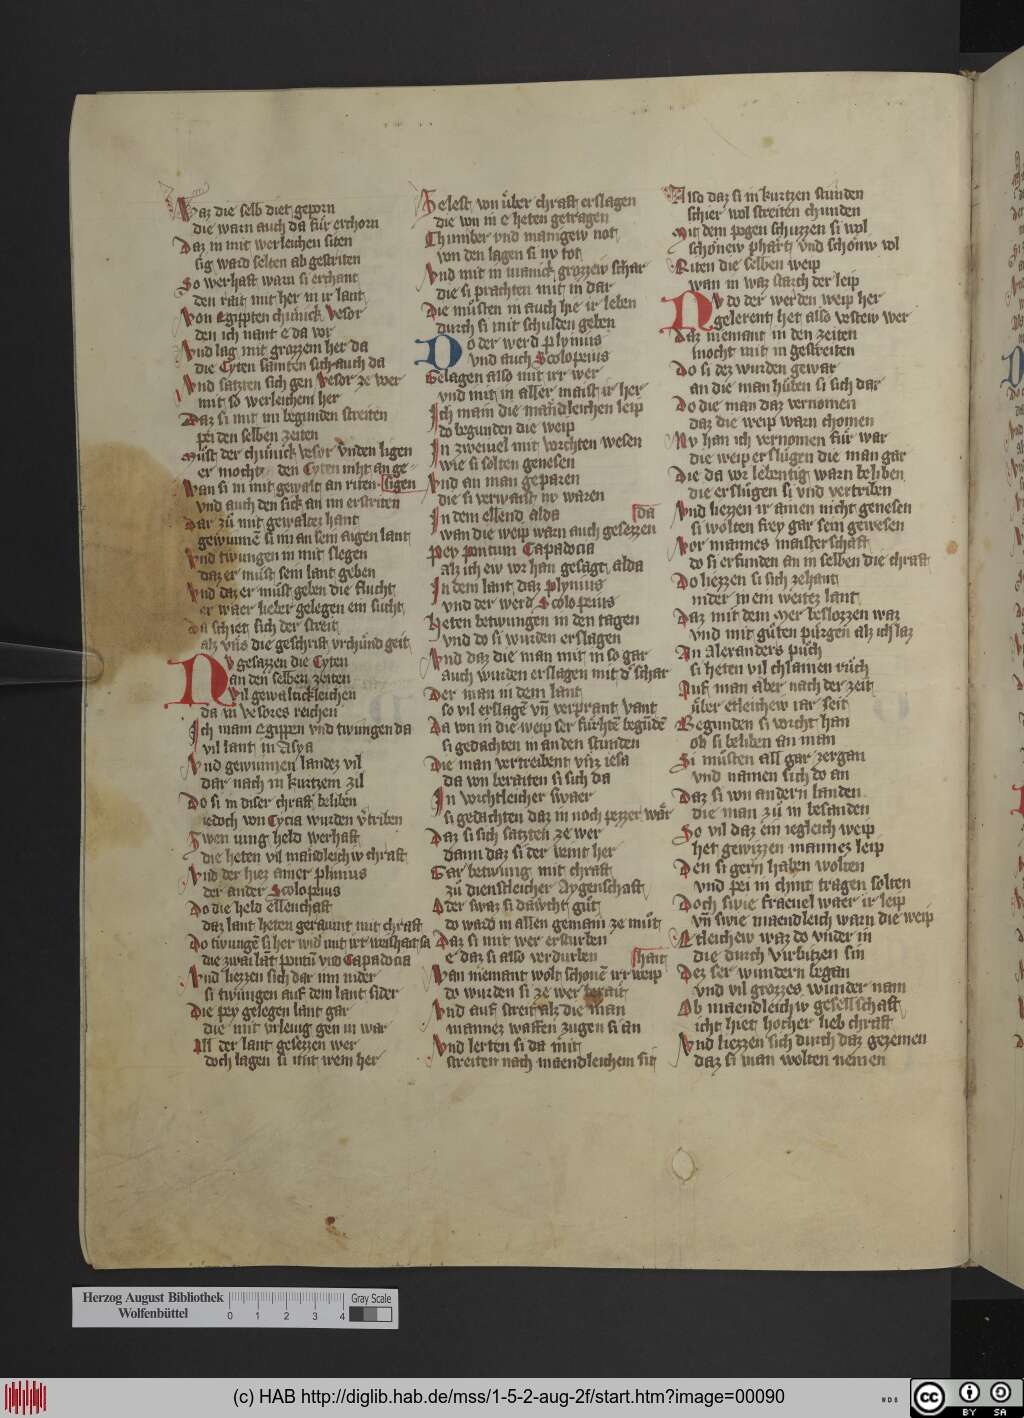 Waz die selb diet geporn
die warn auch da für erchorn
Daz in mit werleichen siten
sig ward selten ab gestriten
So werhaft warn si erchant
den rait mit her in ir lant
Von Egippten chünick Vesor
den ich nant e da vor
Vnd lag mit grozzem her da
die Cyten samten sich auch da
Vnd satzten sich gen Vesor ze wer
mit so werleichem her
Daz si mit im begunden streiten
pei den selben zeiten
Müst der chünick vesor vnden ligen
er mocht den Cyten niht an ge-
Wan si in mit gewalt an riten sigen
vnd auch den sick an im erstriten
Dar zů mit gewalter hant
gewunnē si im an sein aigen lant
Vnd twungen in mit slegen
daz er must sein lant geben
Vnd daz er must geben die flucht
er waer lieber gelegen ein sucht
Da schiet sich der streit
alz vns die geschrift vrchund geit
NV gesazzen die Cyten
an den selben zeiten
vil gewalticklichen
da in Vesores reichen
Ich main Egippen vnd twungen da
vil lant in Asya
Vnd gewunnen landez vil
dar nach in kurtzem zil
Do si in diser chraft beliben
iedoch von Cycia wurden vtriben
Zwen iung held werhaft
die heten vil mändleichw chraft
Vnd der hiez ainer plinius
der ander Scolopeius
Do die held ellenchaft
daz lant heten geraumt mit chraft
Do twungē si her wid mit irr weishait sa
die zwai lāt pontū vnd Capadocia
Vnd liezzen sich dar inn nider
si twungen auf dem lant sider
Die pey gelegen lant gar
die mit vrleug gen in war
All der lant gesezzen wer
doch lagen si mit wem her
Ze lest von über chraft erslagen
die von in e heten getragen
Chumber vnd manigew not
von den lagen si nv tot
Vnd mit in manick grozzew schar
die si prachten mit in dar
Die müsten in auch hie ir leben
durch si mit schulden geben
DO der werd plynius
vnd auch Scolopeius
Gelagen also mit irr wer
vnd mit in aller maist ir her
Ich main die mandleichen leip
do begunden die weip
In zweiuel mit vorchten wesen
wie si solten genesen
Vnd an man geparen
die si verwaist nv waren
In dem ellend alda da
wan die weip warn auch gesezzen
Pey pontum Capadocia
alz ich ew vor han gesagt alda
In dem lant daz plynius
vnd der werd Scolopeius
Heten betwungen in den tagen
vnd do si wurden erslagen
Vnd daz die man mit in so gar
auch wurden erslagen mit d' schar
Der man in dem lant
so vil erslagē vn verprant vant
Da von in die weip ser fürhtē begūdē
si gedachten in an den stunden
Die man vertreibent vnz iesa
da von beraiten si sich da
In vorchtleicher swaer
si gedachten daz in noch pezzer waͤr
Daz si sich satzten ze wer
dann daz si der veint her
Gar betwung mit chraft
zů dienstleicher Aygenschaft
Oder swaz si dawcht gůt
do ward in allen gemain ze můt
Daz si mit wer ersturben
e daz si also verdurben shait
Wan niemant wolt schonē irr weip
do wurden si ze wer berait
Vnd auf streit alz die man
mannez waffen zugen si an
Vnd lerten si da mit
streiten nach maendleichem sit
Also daz si in kurtzen stunden
schier wol streiten chunden
Mit dem pogen schuzzen si wol
schonew phärt vnd schönw vol
Riten die selben weip
wan in waz starch der leip
NV do der werden weip her
gelerent het also vestew wer
Daz niemant in den zeiten
mocht mit in gestreiten
Do si dez wurden gewar
an die man hůben si sich dar
Do die man daz vernomen
daz die weip warn chomen
Nv han ich vernomen für war
die weip erslügen die man gar
Die da vor lebentig warn beliben
die erslügen si vnd vertriben
Vnd liezzen ir ainen nicht genesen
si wolten frey gar sein gewesen
Vor mannes maisterschaft
do si erfunden an in selben die chraft
Do liezzen si sich zehant
nider in ein weitez lant
Daz mit dem mer beslozzen waz
vnd mit güten pürgen alz ich laz
An Alexanders půch
si heten vil chlainen růch
Auf man aber nach der zeit
über etleichew iar seit
Begunden si vorcht han
ob si beliben an man
Si müsten all gar zergan
vnd namen sich do an
Daz si von andern landen
die man zů in besanden
So vil daz ein iegleich weip
het gewizzen mannez leip
Den si gern haben wolten
vnd pei in chint tragen solten
Doch swie fraeuel waer ir leip
vn swie maendleich warn die weip
Etleichew waz do vnder in
die durch virbitzen sin
Dez ser wundern began
vnd vil grozzes wunder nam
Ob maendleichw gesellschaft
icht hiet hocher lieb chraft
Vnd liezzen sich durch daz gezemen
daz si man wolten nemen
Herzog August Bibliothek
Wolfenbüttel
0 1 2 3 4
Gray Scale
(c) HAB http://diglib.hab.de/mss/1-5-2-aug-2f/start.htm?image=00090
WDB
cc BY SA